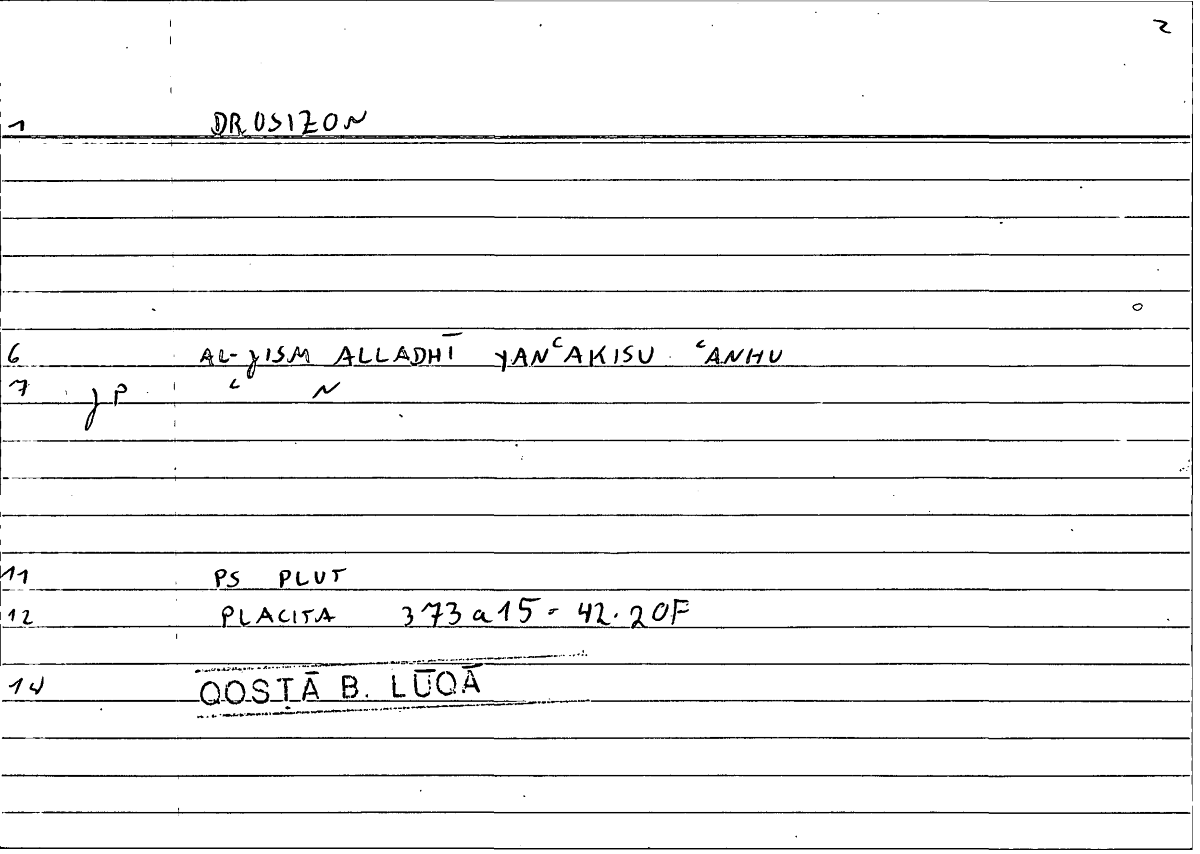 2
1 DROSIZON
6 AL-ǧISM ALLADHĪ YANʿAKISU ʿANHU
7 ǧP ʿ N
11 PS PLUT
12 PLACITA 373a15 - 42.20F
14 QOSṬĀ B. LŪQĀ